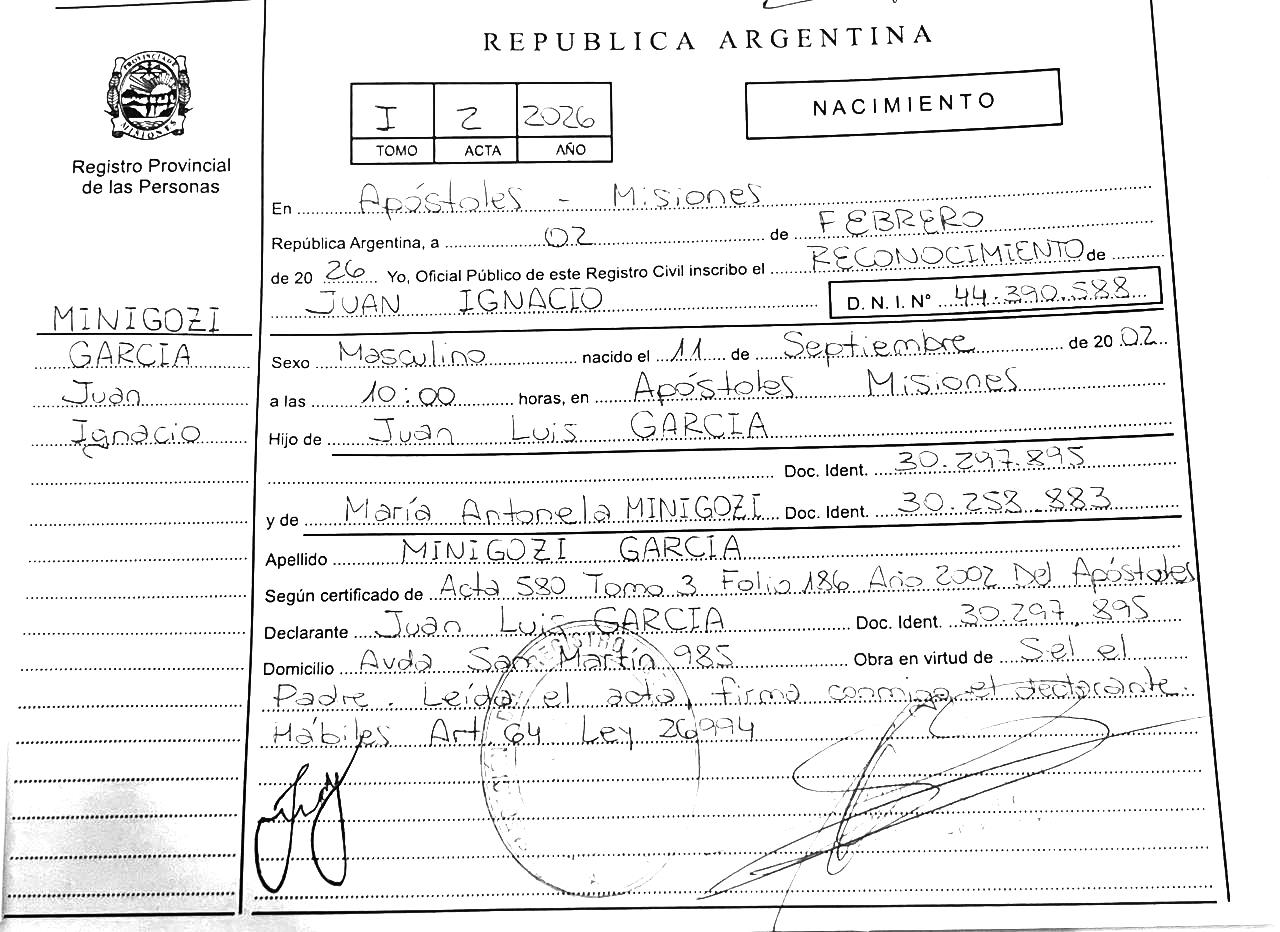 REPUBLICA ARGENTINA
PROVINCIA DE
MISIONES
Registro Provincial
de las Personas
I 2 2026
TOMO ACTA AÑO
NACIMIENTO
En Apóstoles - Misiones
República Argentina, a 02 de FEBRERO
de 20 26 Yo, Oficial Público de este Registro Civil inscribo el RECONOCIMIENTO de
JUAN IGNACIO D. N. I. N° 44.390.588
MINIGOZI
GARCIA
Juan
Ignacio
Sexo Masculino nacido el 11 de Septiembre de 20 02
a las 10:00 horas, en Apóstoles Misiones
Hijo de Juan Luis GARCIA
Doc. Ident. 30.297.895
y de María Antonela MINIGOZI Doc. Ident. 30.258.883
Apellido MINIGOZI GARCIA
Según certificado de Acta 580 Tomo 3 Folio 186 Año 2002 Del Apóstoles
Declarante Juan Luis GARCIA Doc. Ident. 30.297.895
Domicilio Avda San Martín 985 Obra en virtud de Sel el
Padre. Leída el acta, firma conmigo el declarante.
Hábiles Art. 64 Ley 26994
REGISTRO